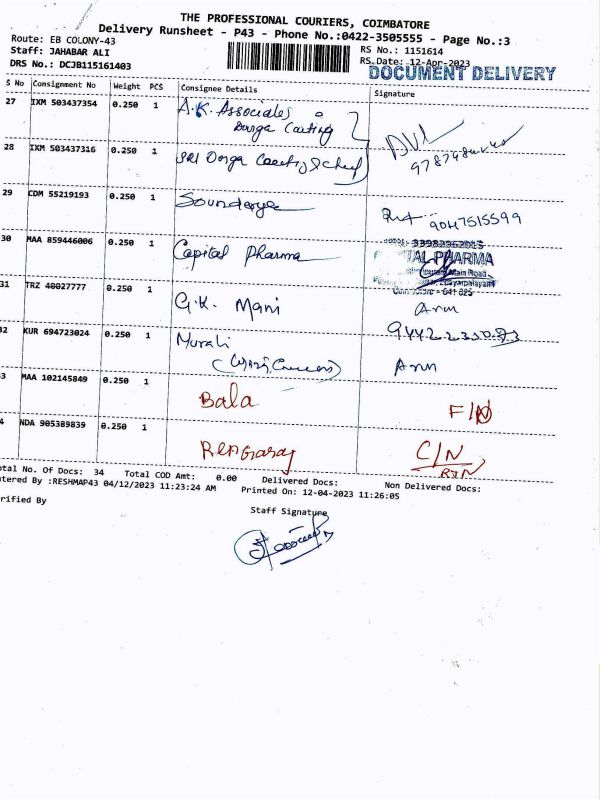 THE PROFESSIONAL COURIERS, COIMBATORE
Delivery Runsheet - P43 - Phone No.:0422-3505555 - Page No.:3
Route: EB COLONY-43
RS No.: 1151614
Staff: JAHABAR ALI
RS.Date: 12-Apr-2023
DRS No.: DCJB115161403
DOCUMENT DELIVERY
S No Consignment No Weight PCS Consignee Details Signature
27 IXM 503437354 0.250 1 A.K. Associates
Durga Casting
28 IXM 503437316 0.250 1 SRI Durga
29 CDM 55219193 0.250 1 Soundarya
9047515599
30 MAA 859446006 0.250 1 Capital Pharma
TAL PHARMA
Main Road
31 TRZ 40027777 0.250 1 G.K. Mani Arun
32 KUR 694723024 0.250 1 Murali
Arun
3 MAA 102145849 0.250 1 Bala F/N
4 NDA 905389839 0.250 1 Rengaraj C/N
RTN
otal No. Of Docs: 34 Total COD Amt: 0.00 Delivered Docs: Non Delivered Docs:
ntered By :RESHMAP43 04/12/2023 11:23:24 AM Printed On: 12-04-2023 11:26:05
rified By
Staff Signature